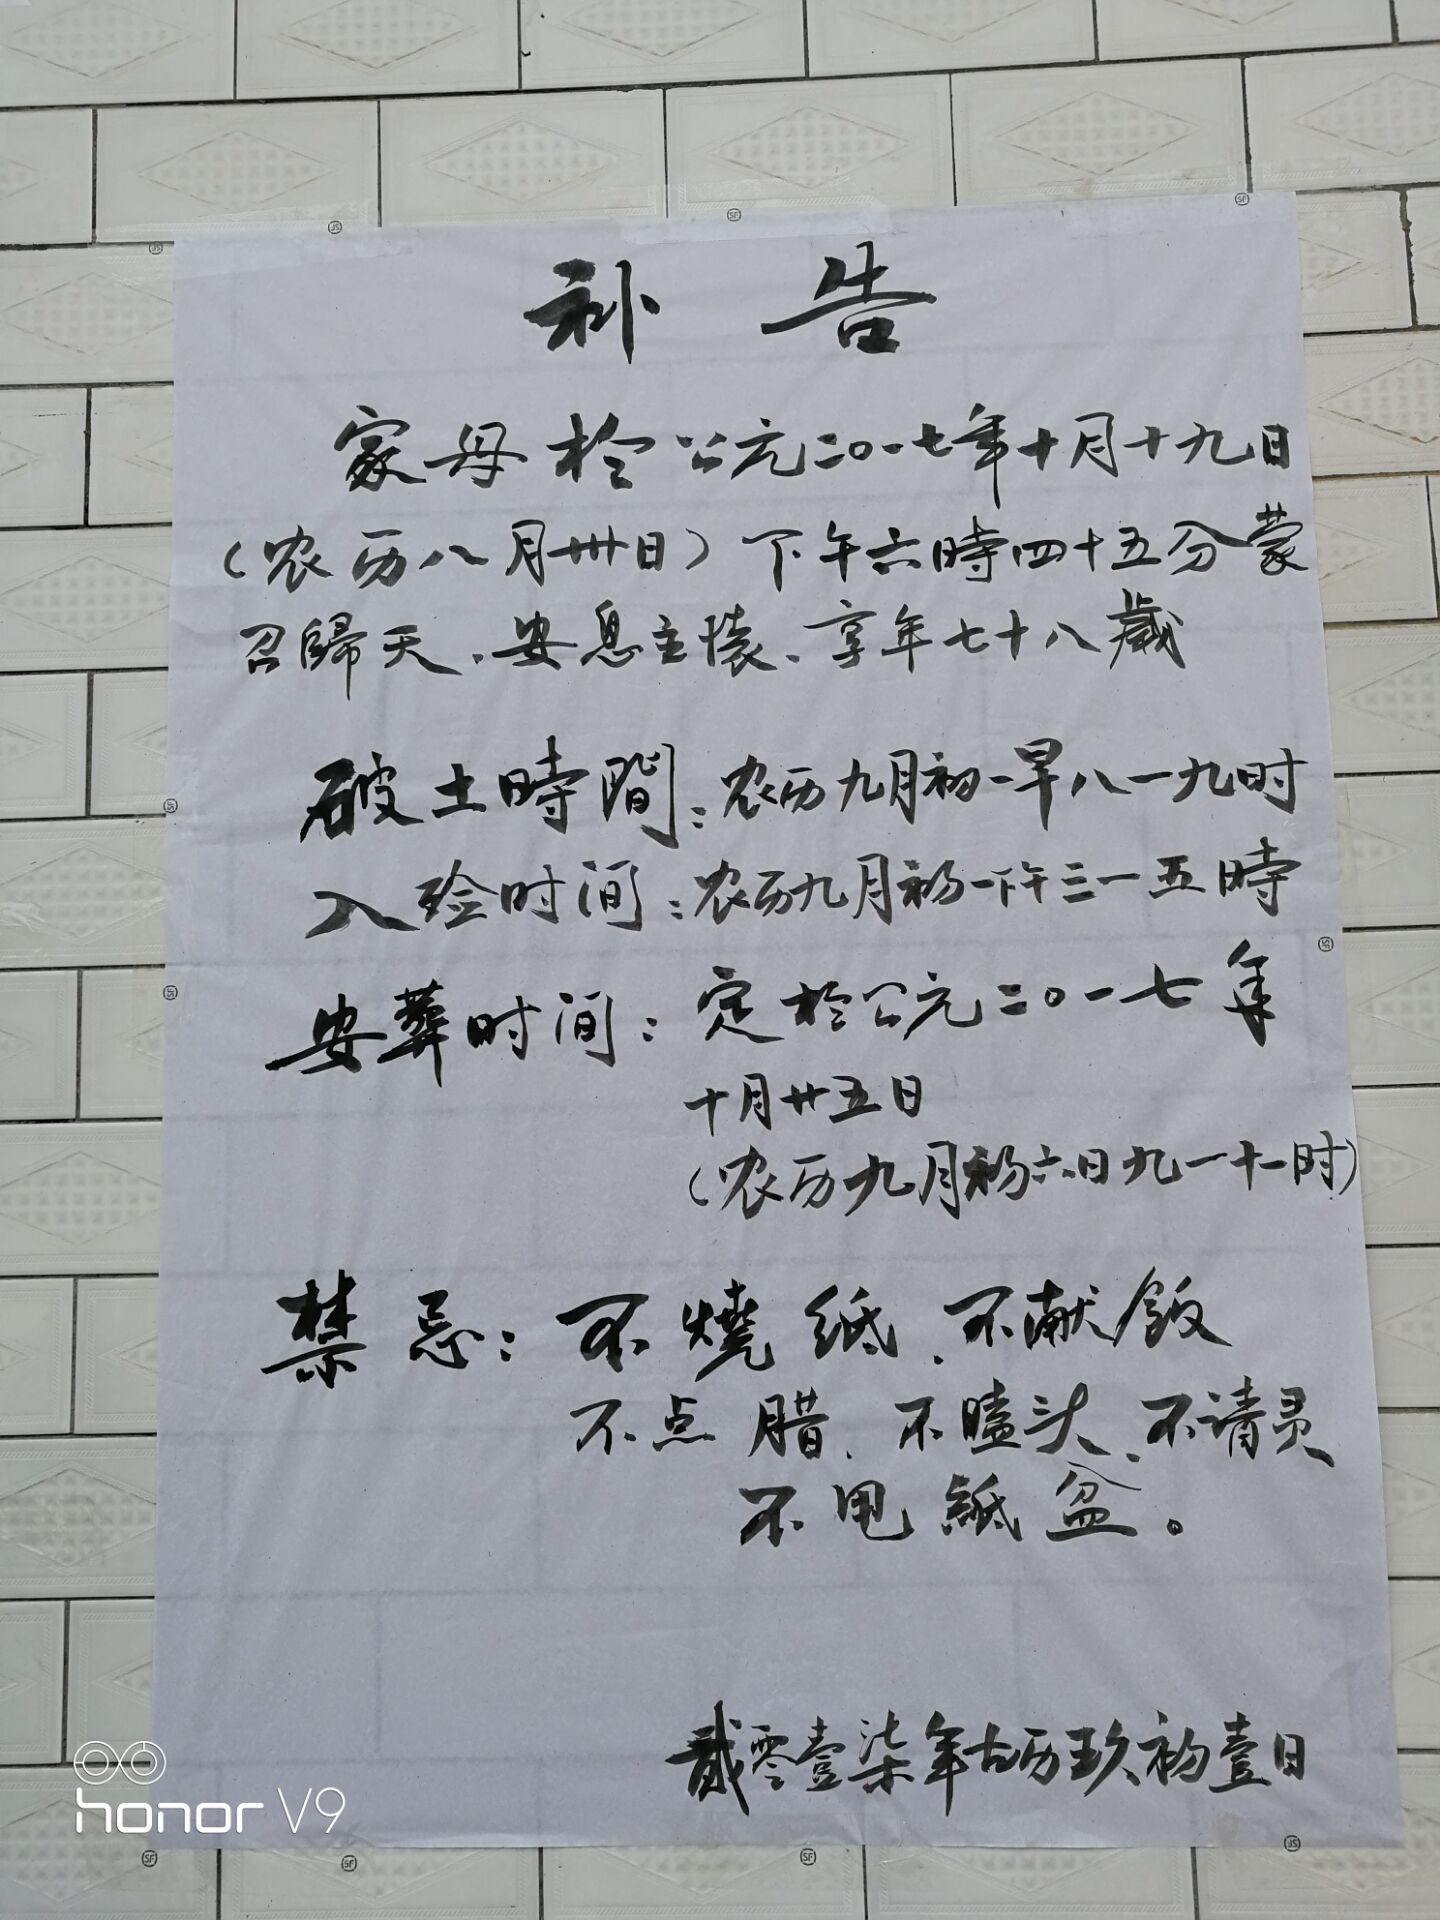 补 告
家母於公元二〇一七年十月十九日
(农历八月卅日)下午六時四十五分蒙
召歸天、安息主懷、享年七十八歲
破土時間:农历九月初一早八一九时
入殓时间:农历九月初一下午三一五時
安葬时间:定於公元二〇一七年
十月廿五日
(农历九月初六日九一十一时)
禁忌:不燒纸、不献飯
不点腊、不瞌头、不请灵
不甩紙盆。
贰零壹柒年古历玖初壹日
honor V9
SF